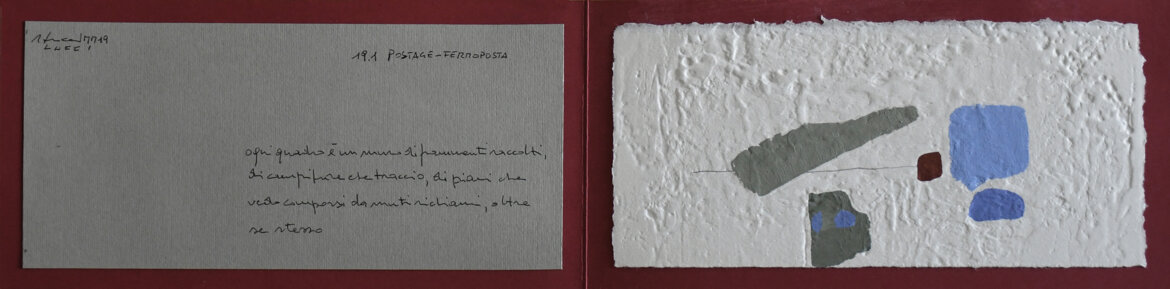 19.1 POSTAGE-FERMOPOSTA
ogni quadro è un muro di frammenti raccolti,
di campiture che traccio, di piani che
vedo comporsi da muti richiami, oltre
se stesso